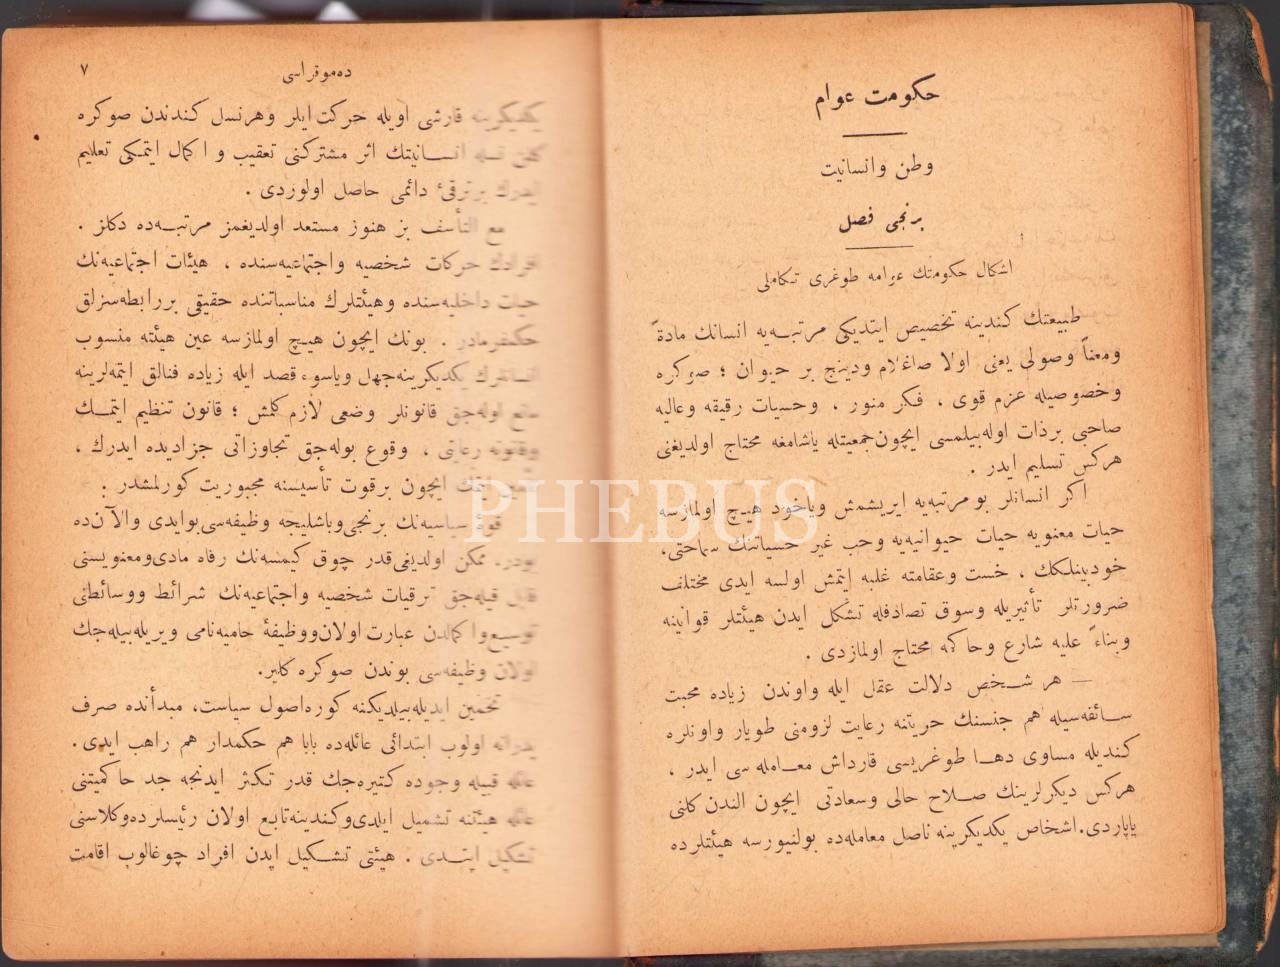 حكومت عوام
وطن وانسانيت
برنجى فصل
اشكال حكومتك عوامه طوغرى تكاملى
طبيعتك كندينه تخصيص ايتديكى مرتبه‌يه انسانك مادةً
ومعناً وصولى يعنى اولا صاغلام ودينج بر حيوان ؛ صوكره
وخصوصيله عزم قوى ، فكر منور ، وحسيات رقيقه وعاليه
صاحبى برذات اوله‌بيلمسى ايچون جمعيتله ياشامغه محتاج اولديغنى
هركس تسليم ايدر .
اكر انسانلر بو مرتبه‌يه ايريشمش وياخود هيچ اولمازسه
حيات معنويه حيات حيوانيه‌يه وحب غير حسياتنك سماحتى،
خودبينلكك ، خست وعقامته غلبه ايتمش اولسه ايدى مختلف
ضرورتلر تأثيريله وسوق تصادفله تشكل ايدن هيئتلر قوانينه
وبناءً عليه شارع وحاكمه محتاج اولمازدى .
— هر شخص دلالت عقل ايله واوندن زياده محبت
سائقه‌سيله هم جنسنك حريتنه رعايت لزومنى طويار واونلره
كنديله مساوى دها طوغريسى قارداش معامله سى ايدر ،
هركس ديكرلرينك صلاح حالى وسعادتى ايچون الندن كلنى
ياپاردى. اشخاص يكديكرينه ناصل معامله‌ده بولنيورسه هيئتلرده
ده‌موقراسى ٧
يكديكرينه قارشى اويله حركت ايلر وهرنسل كندندن صوكره
كلن نسله انسانيتك اثر مشتركنى تعقيب و اكمال ايتمكى تعليم
ايدرك برترقئ دائمى حاصل اولوزدى .
مع التأسف بز هنوز مستعد اولديغمز مرتبه‌ده دكلز .
افرادك حركات شخصيه واجتماعيه‌سنده ، هيئات اجتماعيه‌نك
حيات داخليه‌سنده وهيئتلرك مناسباتنده حقيقى بررابطه‌سزلق
حكمفرمادر . بونك ايچون هيچ اولمازسه عين هيئته منسوب
انسانلرك يكديكرينه جهل وياسوء قصد ايله زياده فنالق ايتمه‌لرينه
مانع اوله‌جق قانونلر وضعى لازم كلمش ؛ قانون تنظيم ايتمك
وقانونه رعايتى ، وقوع بوله‌جق تجاوزاتى جزاديده ايدرك ،
ايتمك ايچون برقوت تأسيسنه مجبوريت كورلمشدر .
قوۀ سياسيه‌نك برنجى وباشليجه وظيفه‌سى بوايدى والآن‌ده
بودر. ممكن اولديغى قدر چوق كيمسه‌نك رفاه مادى ومعنويسنى
قابل قيله‌جق ترقيات شخصيه واجتماعيه‌نك شرائط ووسائطنى
توسيع واكمالدن عبارت اولان ووظيفۀ حاميه‌نامى ويريله‌بيله‌جك
اولان وظيفه‌سى بوندن صوكره كلير.
تخمين ايديله‌بيلديكنه كوره اصول سياست، مبدأنده صرف
پدرانه اولوب ابتدائى عائله‌ده بابا هم حكمدار هم راهب ايدى.
عائله قبيله وجوده كتيره‌جك قدر تكثر ايدنجه جد حاكميتنى
عائله هيئتنه تشميل ايلدى وكندينه تابع اولان رئيسلرده وكلاسنى
تشكيل ايتدى . هيئتى تشكيل ايدن افراد چوغالوب اقامت
PHEBUS